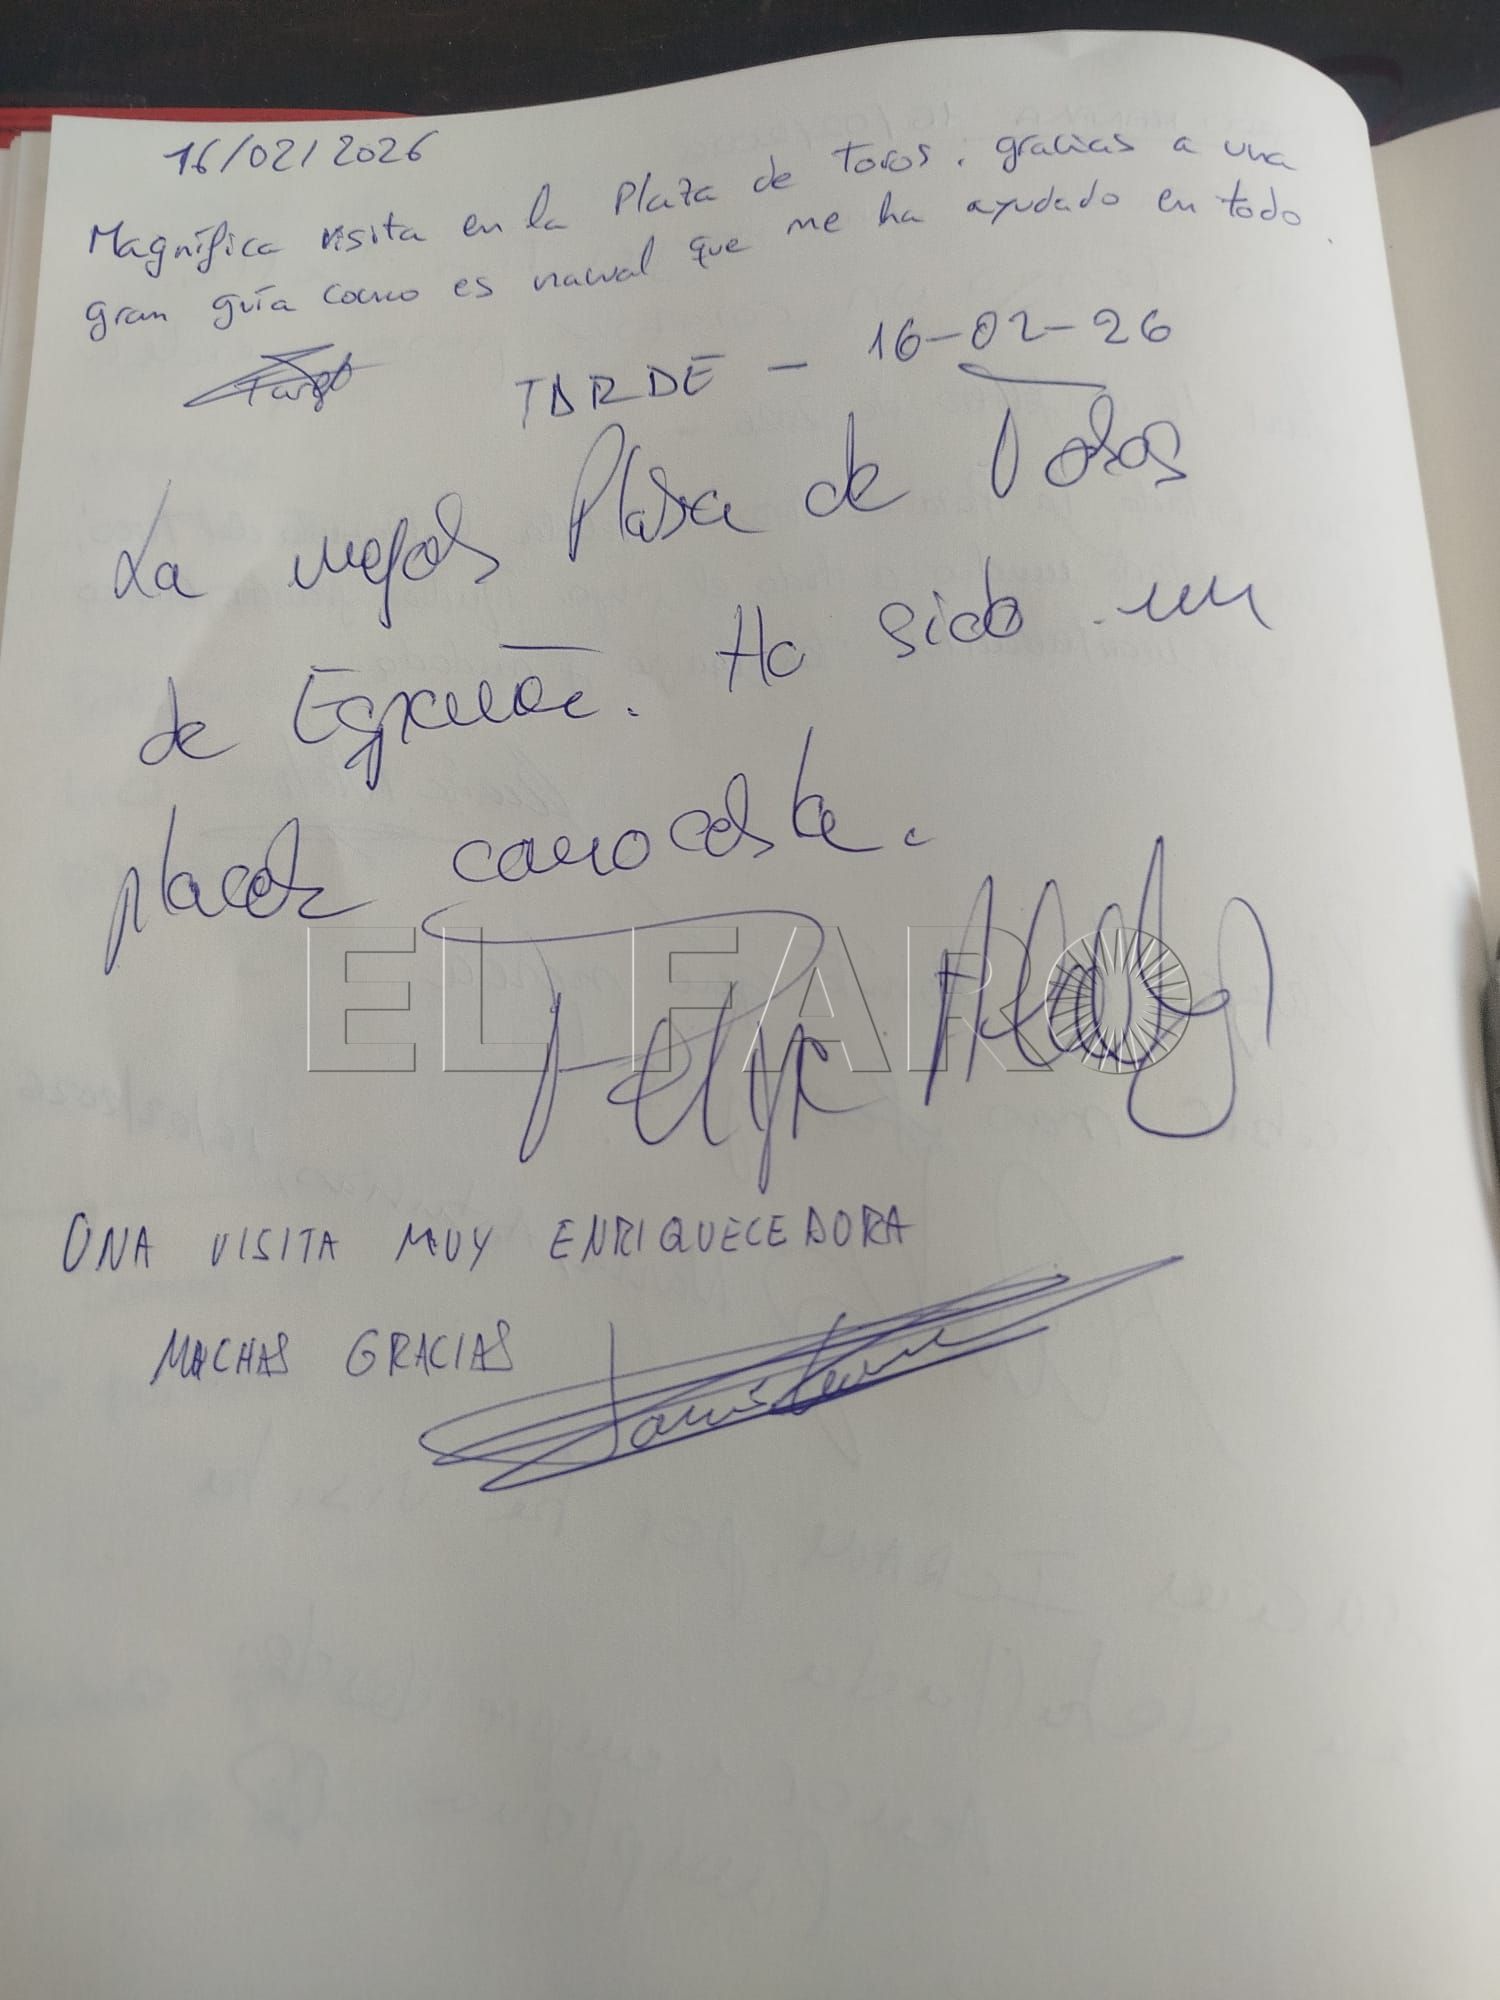 16/02/2026
Magnífica visita en la Plaza de Toros, gracias a una
gran guía como es nawal que me ha ayudado en todo.
TARDE - 16-02-26
La mejor Plaza de Toros
de España. Ha sido un
placer conocerte.
EL FARO
Felipe
UNA VISITA MUY ENRIQUECEDORA
MUCHAS GRACIAS